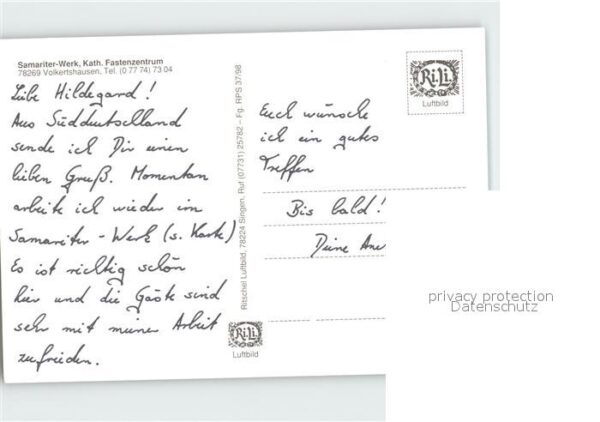 Samariter-Werk, Kath. Fastenzentrum
78269 Volkertshausen, Tel. (0 77 74) 73 04
Liebe Hildegard!
Aus Süddeutschland
sende ich Dir einen
lieben Gruß. Momentan
arbeite ich wieder im
Samariter-Werk (s. Karte)
Es ist richtig schön
hier und die Gäste sind
sehr mit meiner Arbeit
zufrieden.
Ritschel Luftbild, 78224 Singen, Ruf (07731) 25782 – Fg. RPS 37/98
Ri.Li.
Luftbild
Ri.Li.
Luftbild
Euch wünsche
ich ein gutes
Treffen
Bis bald!
Deine Ane
privacy protection
Datenschutz